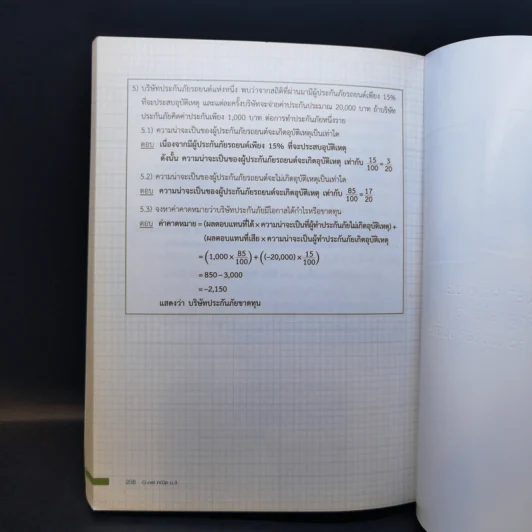 5) บริษัทประกันภัยรถยนต์แห่งหนึ่ง พบว่าจากสถิติที่ผ่านมามีผู้ประกันภัยรถยนต์เพียง 15%
ที่จะประสบอุบัติเหตุ และแต่ละครั้งบริษัทจะจ่ายค่าประกันประมาณ 20,000 บาท ถ้าบริษัท
ประกันภัยคิดค่าประกันเพียง 1,000 บาท ต่อการทำประกันภัยหนึ่งราย
5.1) ความน่าจะเป็นของผู้ประกันภัยรถยนต์จะเกิดอุบัติเหตุเป็นเท่าใด
ตอบ เนื่องจากมีผู้ประกันภัยรถยนต์เพียง 15% ที่จะประสบอุบัติเหตุ
ดังนั้น ความน่าจะเป็นของผู้ประกันภัยรถยนต์จะเกิดอุบัติเหตุ เท่ากับ 15/100 = 3/20
5.2) ความน่าจะเป็นของผู้ประกันภัยรถยนต์จะไม่เกิดอุบัติเหตุเป็นเท่าใด
ตอบ ความน่าจะเป็นของผู้ประกันภัยรถยนต์จะเกิดอุบัติเหตุ เท่ากับ 85/100 = 17/20
5.3) จงหาค่าคาดหมายว่าบริษัทประกันภัยมีโอกาสได้กำไรหรือขาดทุน
ตอบ ค่าคาดหมาย = (ผลตอบแทนที่ได้ × ความน่าจะเป็นที่ผู้ทำประกันภัยไม่เกิดอุบัติเหตุ) +
(ผลตอบแทนที่เสีย × ความน่าจะเป็นผู้ทำประกันภัยเกิดอุบัติเหตุ
= (1,000 × 85/100) + ((-20,000) × 15/100)
= 850 – 3,000
= –2,150
แสดงว่า บริษัทประกันภัยขาดทุน
208